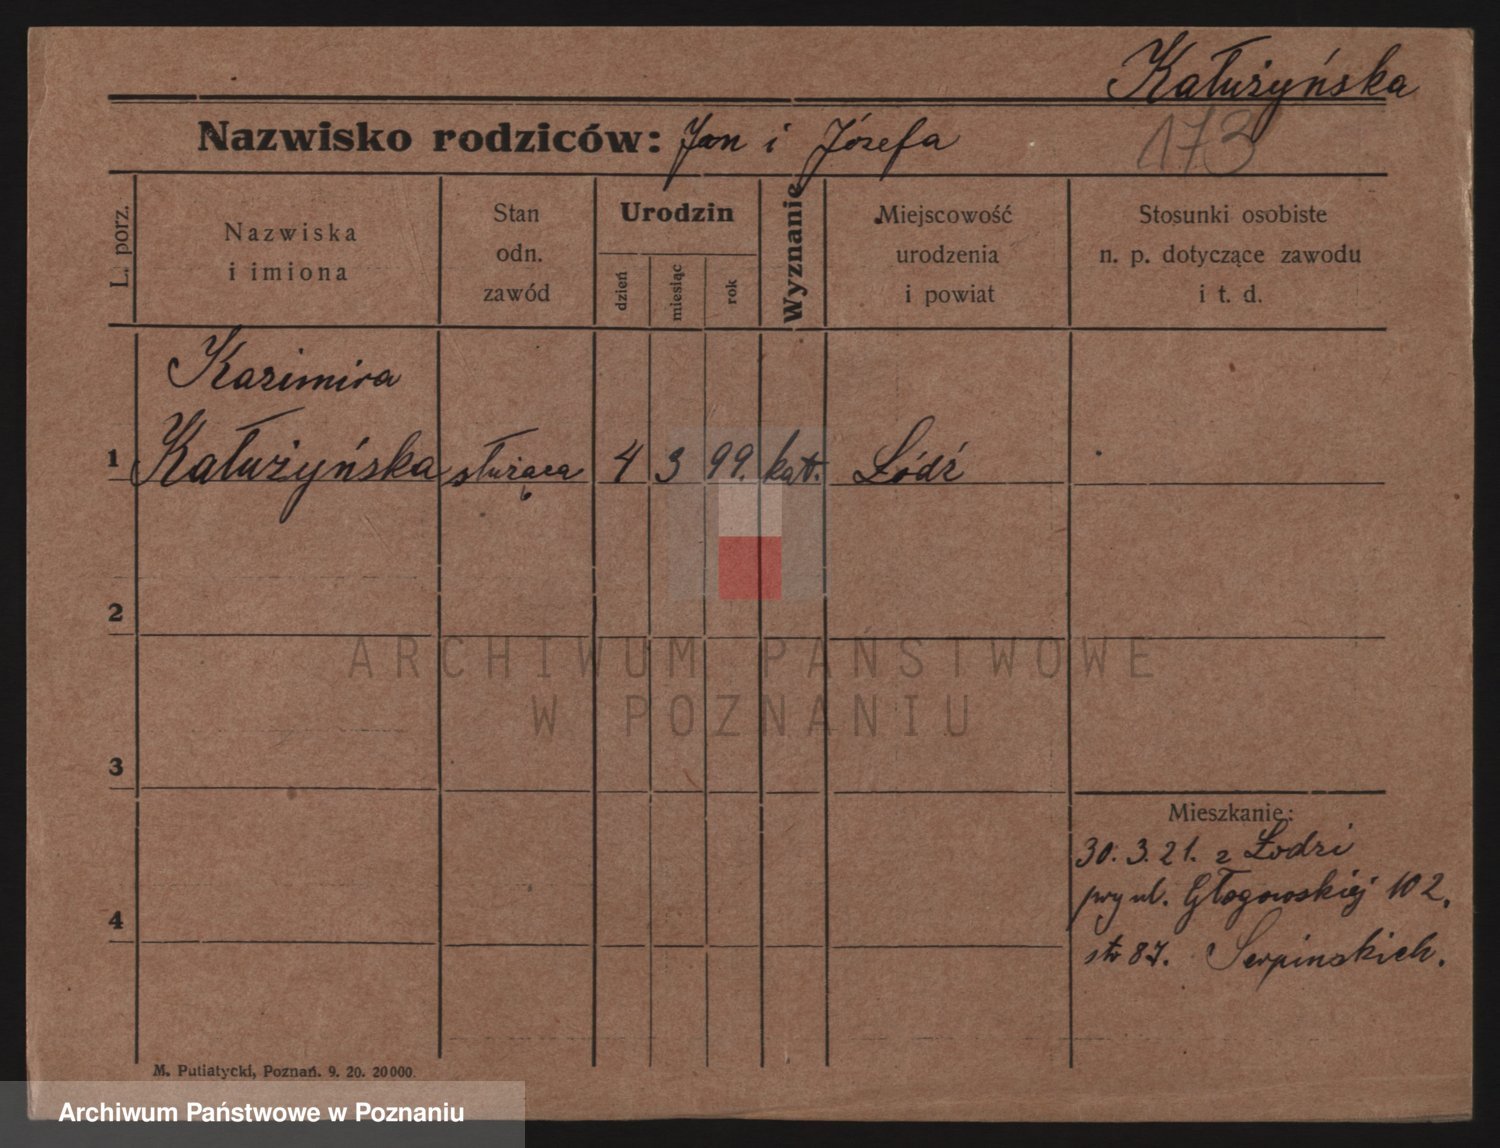 Kałużyńska
Nazwisko rodziców: Jan i Józefa
173
L. porz.
Nazwiska
i imiona
Stan
odn.
zawód
Urodzin
dzień
miesiąc
rok
Wyznanie
Miejscowość
urodzenia
i powiat
Stosunki osobiste
n. p. dotyczące zawodu
i t. d.
Kazimira
1 Kałużyńska służąca 4 3 99. kat. Łódź
2
3
4
Mieszkanie:
30. 3. 21. z Łodzi
przy ul. Głogowskiej 102.
str 87. Serpinskich.
M. Putiatycki, Poznań. 9. 20. 20000.
ARCHIWUM PAŃSTWOWE
W POZNANIU
Archiwum Państwowe w Poznaniu